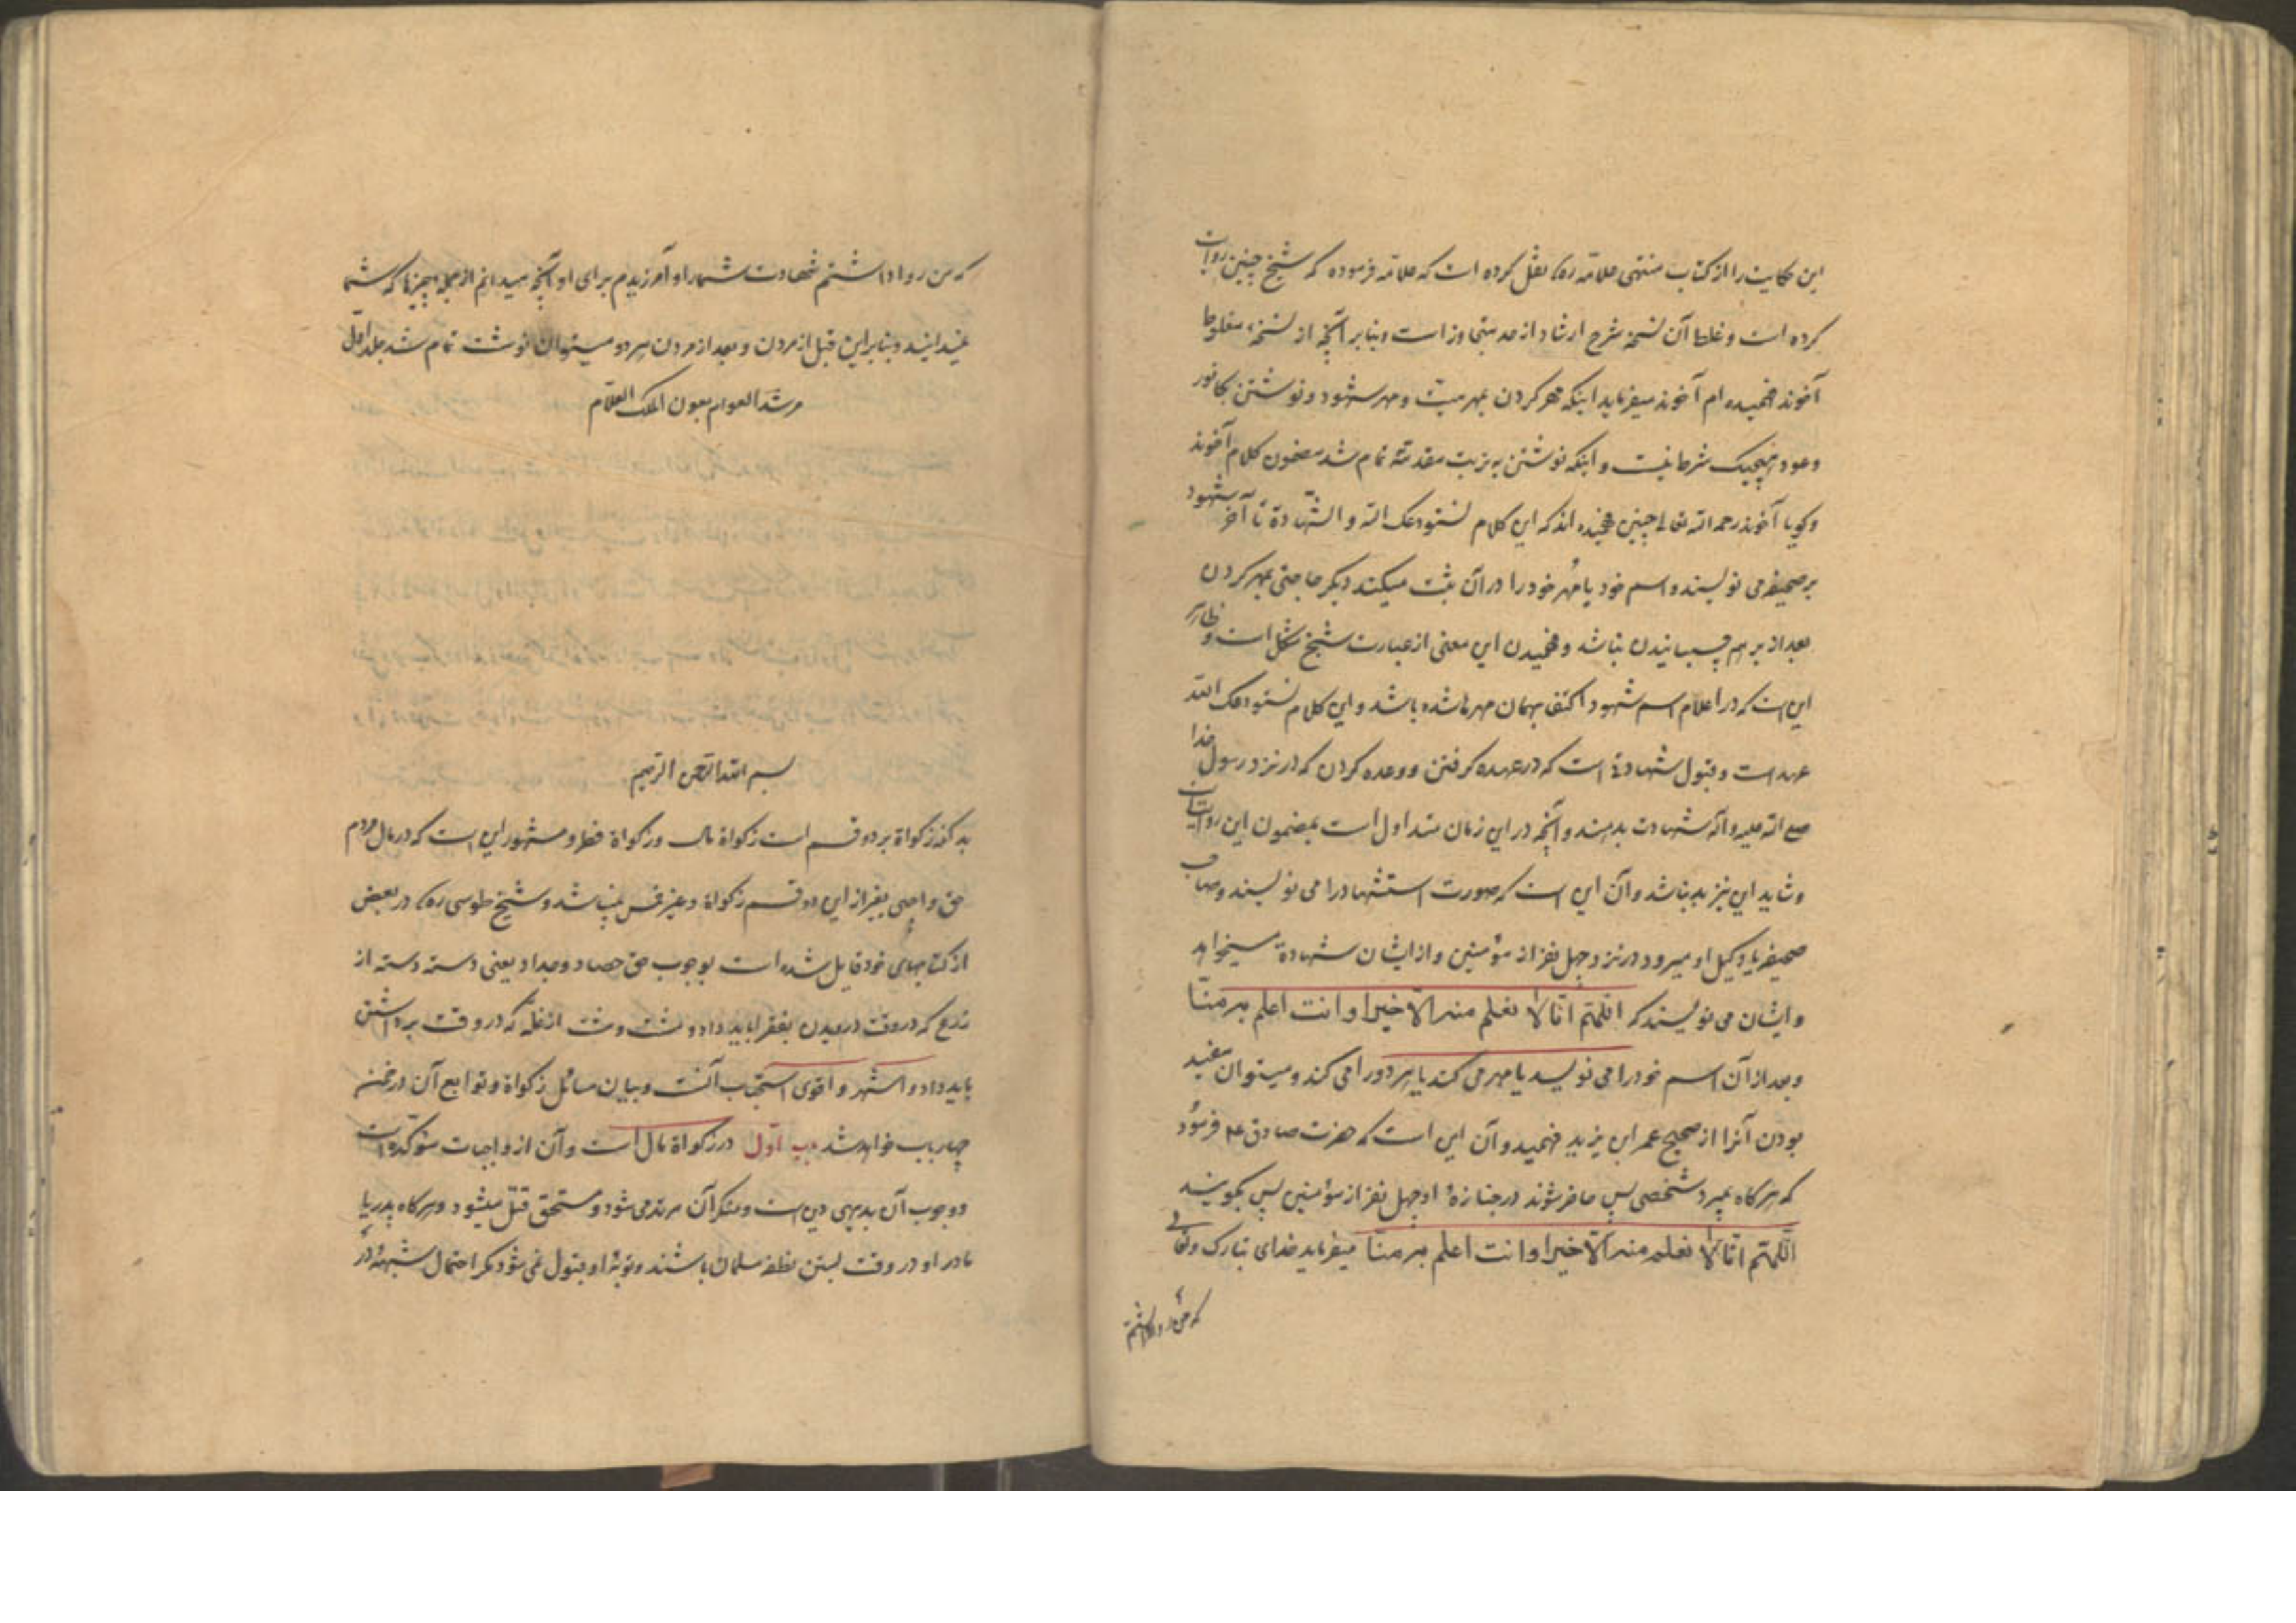 این حکایت را از کتاب منتهی علامه ره نقل کرده است که علامه فرموده که شیخ چنین روایت
کرده است و غلط آن نسخه شرح ارشاد از حد متجاوز است و بنابر آنچه از نسخه مغلوط
آخوند فهمیده ام آخوند میفرماید اینکه مهر کردن بمهر میت و مهر شهود و نوشتن بکافور
و عود هیچیک شرط نیست و اینکه نوشتن به تربت مقدسه تمام شد مضمون کلام آخوند
و کویا آخوند رحمه الله تعالی چنین فهمیده اند که این کلام نستودعک الله و الشهادة تا آخر شهود
بر صحیفه می نویسند و اسم خود یا مُهر خود را در آن ثبت میکنند دیگر حاجتی بمهر کردن
بعد از بر هم چسبانیدن نباشد و فهمیدن این معنی از عبارت شیخ مشکل است و ظاهر
این است که در اعلام اسم شهود اکتفا بهمان مهرها شده باشد و این کلام نستودعک الله
عهد است و قبول شهادة است که در عهده کرفتن و وعده کردن که در نزد رسول خدا
صلع الله علیه و آله شهادت بدهند و آنچه در این زمان متداول است بمضمون این روایت
و شاید این نیز بد نباشد و آن این است که صورت استشهاد را می نویسند و صاحب
صحیفه یا وکیل او میرود در نزد چهل نفر از مؤمنین و از ایشان شهادة میخواهد
و ایشان می نویسند که اللهم انا لا نعلم منه الا خیرا و انت اعلم به منا
و بعد از آن اسم خود را می نویسد یا مهر می کند یا هر دو را می کند و میتوان مفید
بودن آنرا از صحیح عمر ابن یزید فهمید و آن این است که حضرت صادق ع فرمود
که هرکاه بمیرد شخصی پس حاضر شوند در جنازهٔ او چهل نفر از مؤمنین پس بکویند
اللهم انا لا نعلم منه الا خیرا و انت اعلم به منا میفرماید خدای تبارک و تعالی
که من روا داشتم
که من روا داشتم شهادت شما را و آمرزیدم برای او آنچه میدانم از جمله چیزها که شما
نمیدانید و بنابر این قبل از مردن و بعد از مردن هر دو میتوان نوشت تمام شد جلد اول
مرشد العوام بعون الملک العلام
بسم الله الرحمن الرحیم
بدانکه زکواة بر دو قسم است زکواة مال و زکواة فطر و مشهور این است که در مال مردم
حق واجبی بغیر از این دو قسم زکواة و غیر خمس نمیباشد و شیخ طوسی ره در بعض
از کتابهای خود قایل شده است بوجوب حق حصاد و جداد یعنی دسته دسته از
زرع که در وقت درویدن بفقرا باید داد و مشت و مشت از غله که در وقت برداشتن
باید داد و اشهر و اقوی استحباب آنست و بیان مسائل زکواة و توابع آن در ضمن
چهار باب خواهد شد باب اول در زکواة مال است و آن از واجبات مؤکده است
و وجوب آن بدیهی دین است و منکر آن مرتد می شود و مستحق قتل میشود و هرکاه پدر یا
مادر او در وقت بستن نطفه مسلمان باشند و توبهٔ او قبول نمی شود مکر احتمال شبههٔ در